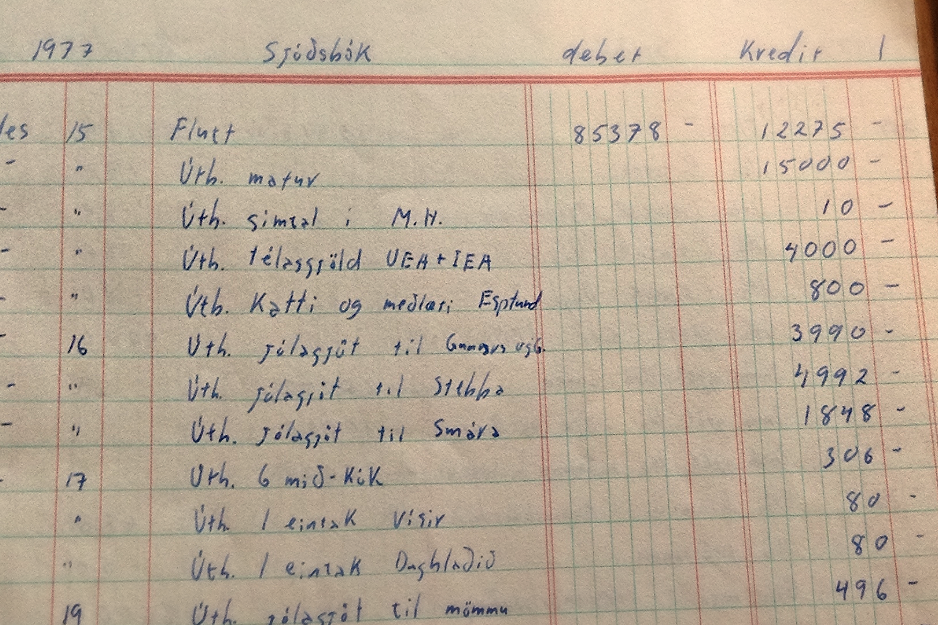 1977 Sjóðsbók debet Kredit 1
des 15 Flutt 85378 - 12275 -
" " Úth. matur 15000 -
" " Úth. símtal í M.H. 10 -
" " Úth. félagsgjöld UEA+IEA 4000 -
" " Úth. Kaffi og meðlæti Esplund 800 -
" 16 Úth. jólagjöf til Gunnars vgb. 3990 -
" " Úth. jólagjöf til Stebba 4992 -
" " Úth. jólagjöf til Smára 1848 -
" 17 Úth. 6 mið-Kók 306 -
" Úth. 1 eintak Vísir 80 -
" Úth. 1 eintak Dagblaðið 80 -
19 Úth. jólagjöf til mömmu 496 -